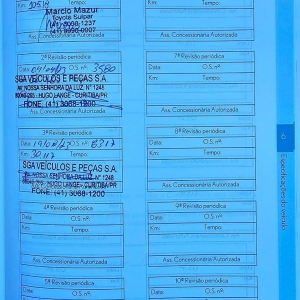 Km: 10514 Tempo:
Marcio Mazur
Toyota Sulpar
(41) 3068-1237
(41) 9990-0007
Ass. Concessionária Autorizada
2ª Revisão periódica
Data: O.S. nº: 3580
SGA VEÍCULOS E PEÇAS S.A.
AV. NOSSA SENHORA DA LUZ, Nº 1248
HUGO LANGE - CURITIBA/PR
FONE: (41) 3068-1200
Ass. Concessionária Autorizada
3ª Revisão periódica
Data: O.S. nº: 8317
Km: 30117 Tempo:
SGA VEÍCULOS E PEÇAS S.A.
AV. NOSSA SENHORA DA LUZ, Nº 1248
HUGO LANGE - CURITIBA/PR
FONE: (41) 3068-1200
Ass. Concessionária Autorizada
4ª Revisão periódica
Data: O.S. nº:
Km: Tempo:
Ass. Concessionária Autorizada
5ª Revisão periódica
Data: O.S. nº:
Km: Tempo:
Ass. Concessionária Autorizada
7ª Revisão periódica
Data: O.S. nº:
Km: Tempo:
Ass. Concessionária Autorizada
8ª Revisão periódica
Data: O.S. nº:
Km: Tempo:
Ass. Concessionária Autorizada
9ª Revisão periódica
Data: O.S. nº:
Km: Tempo:
Ass. Concessionária Autorizada
10ª Revisão periódica
Data: O.S. nº:
6
Especificações do veículo